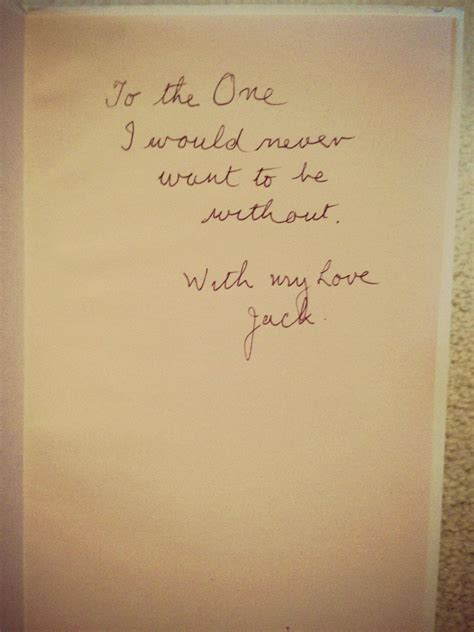 To the One
I would never
want to be
without.
With my Love
Jack.